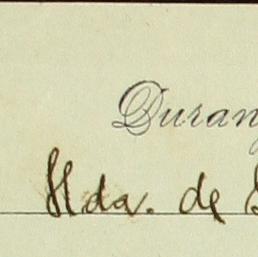 Duran
Hda. de